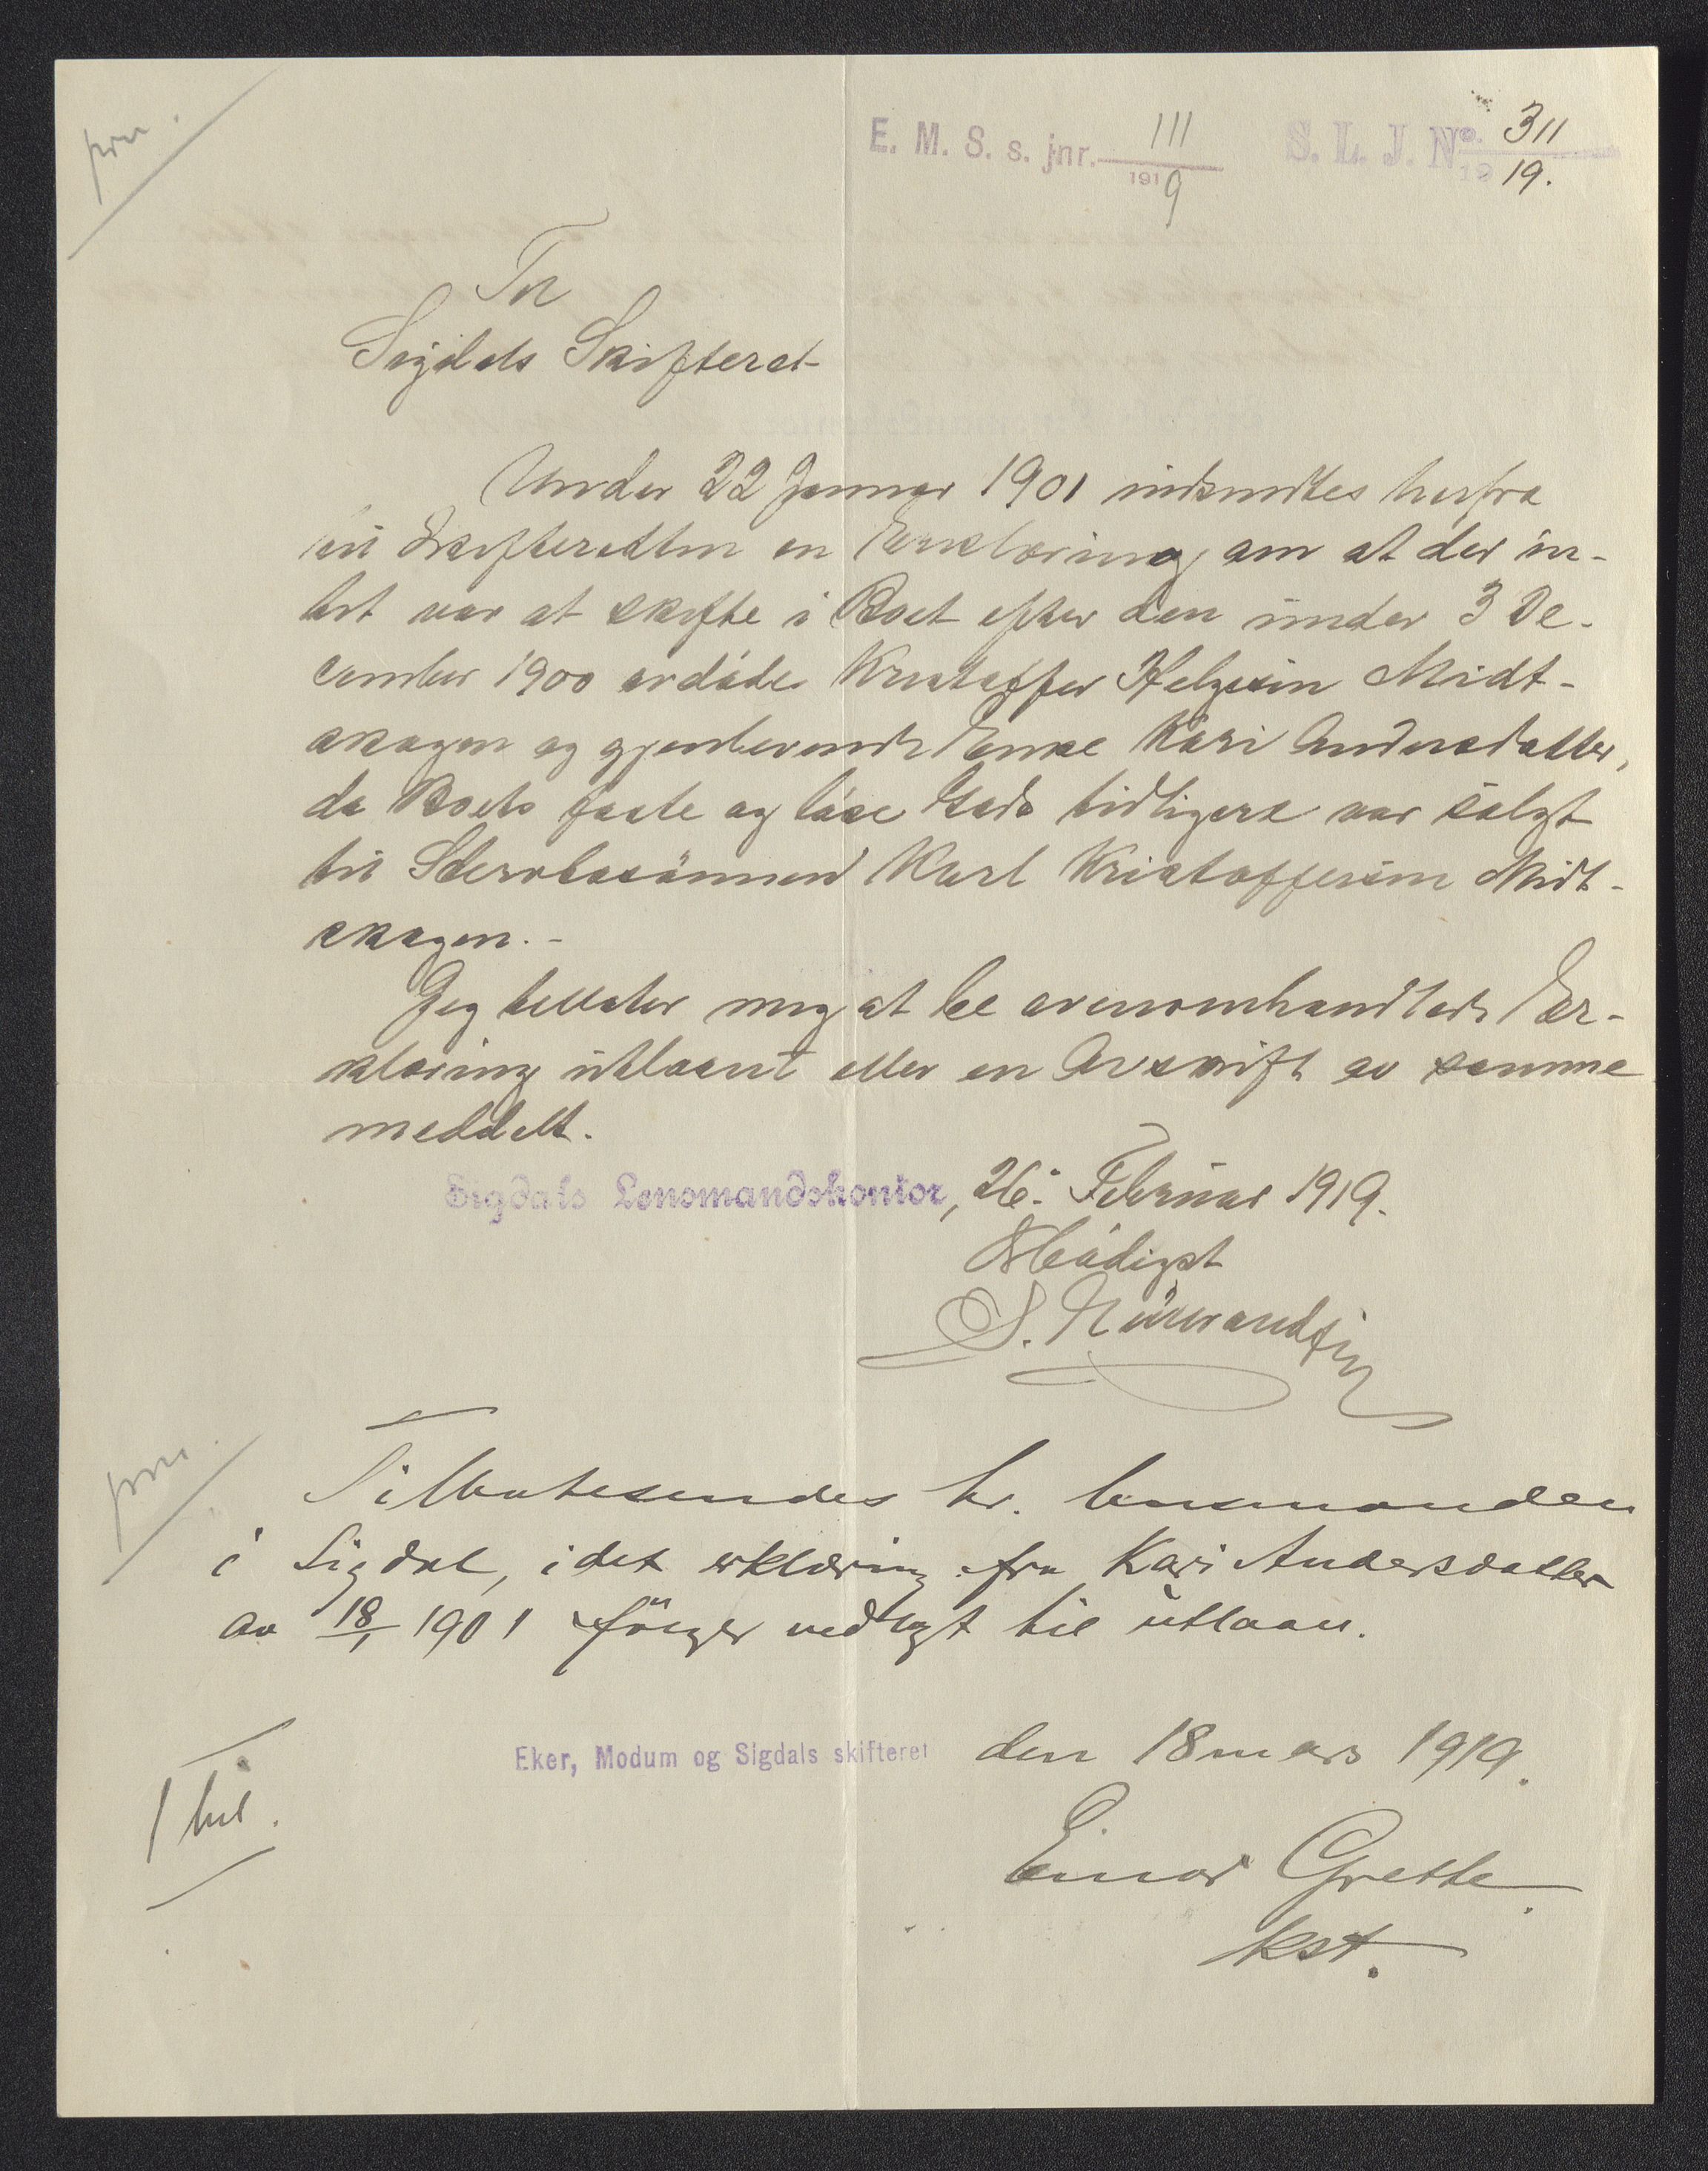 prn.
E. M. S. s. jnr. 111
1919
S. L. J. No. 311
1919.
Til
Sigdals Skifteret
Under 22 Januar 1901 indsendtes herfra
til Skifteretten en Erklæring om at der in-
tet var at skifte i Boet efter den under 3 De-
cember 1900 avdöde Kristoffer Helgesen Midt-
skogen og gjenlevende Enke Kari Andersdatter,
da Boets faste og löse Gods tidligere var solgt
til Stervbosönnen Karl Kristoffersen Midt-
skogen.-
Jeg tillater mig at be ovenomhandlede Er-
klæring utlaant eller en Avskrift av samme
meddelt.
Sigdals Lensmandskontor, 26. Februar 1919.
Ærbödigst
prn.
Tilbakesendes hr. lensmanden
i Sigdal, idet erklæring fra Kari Andersdatter
av 18/1 1901 fölger vedlagt til utlaan.
Eker, Modum og Sigdals skifteret den 18 mars 1919.
1 bil.
Einar Grette
kst.